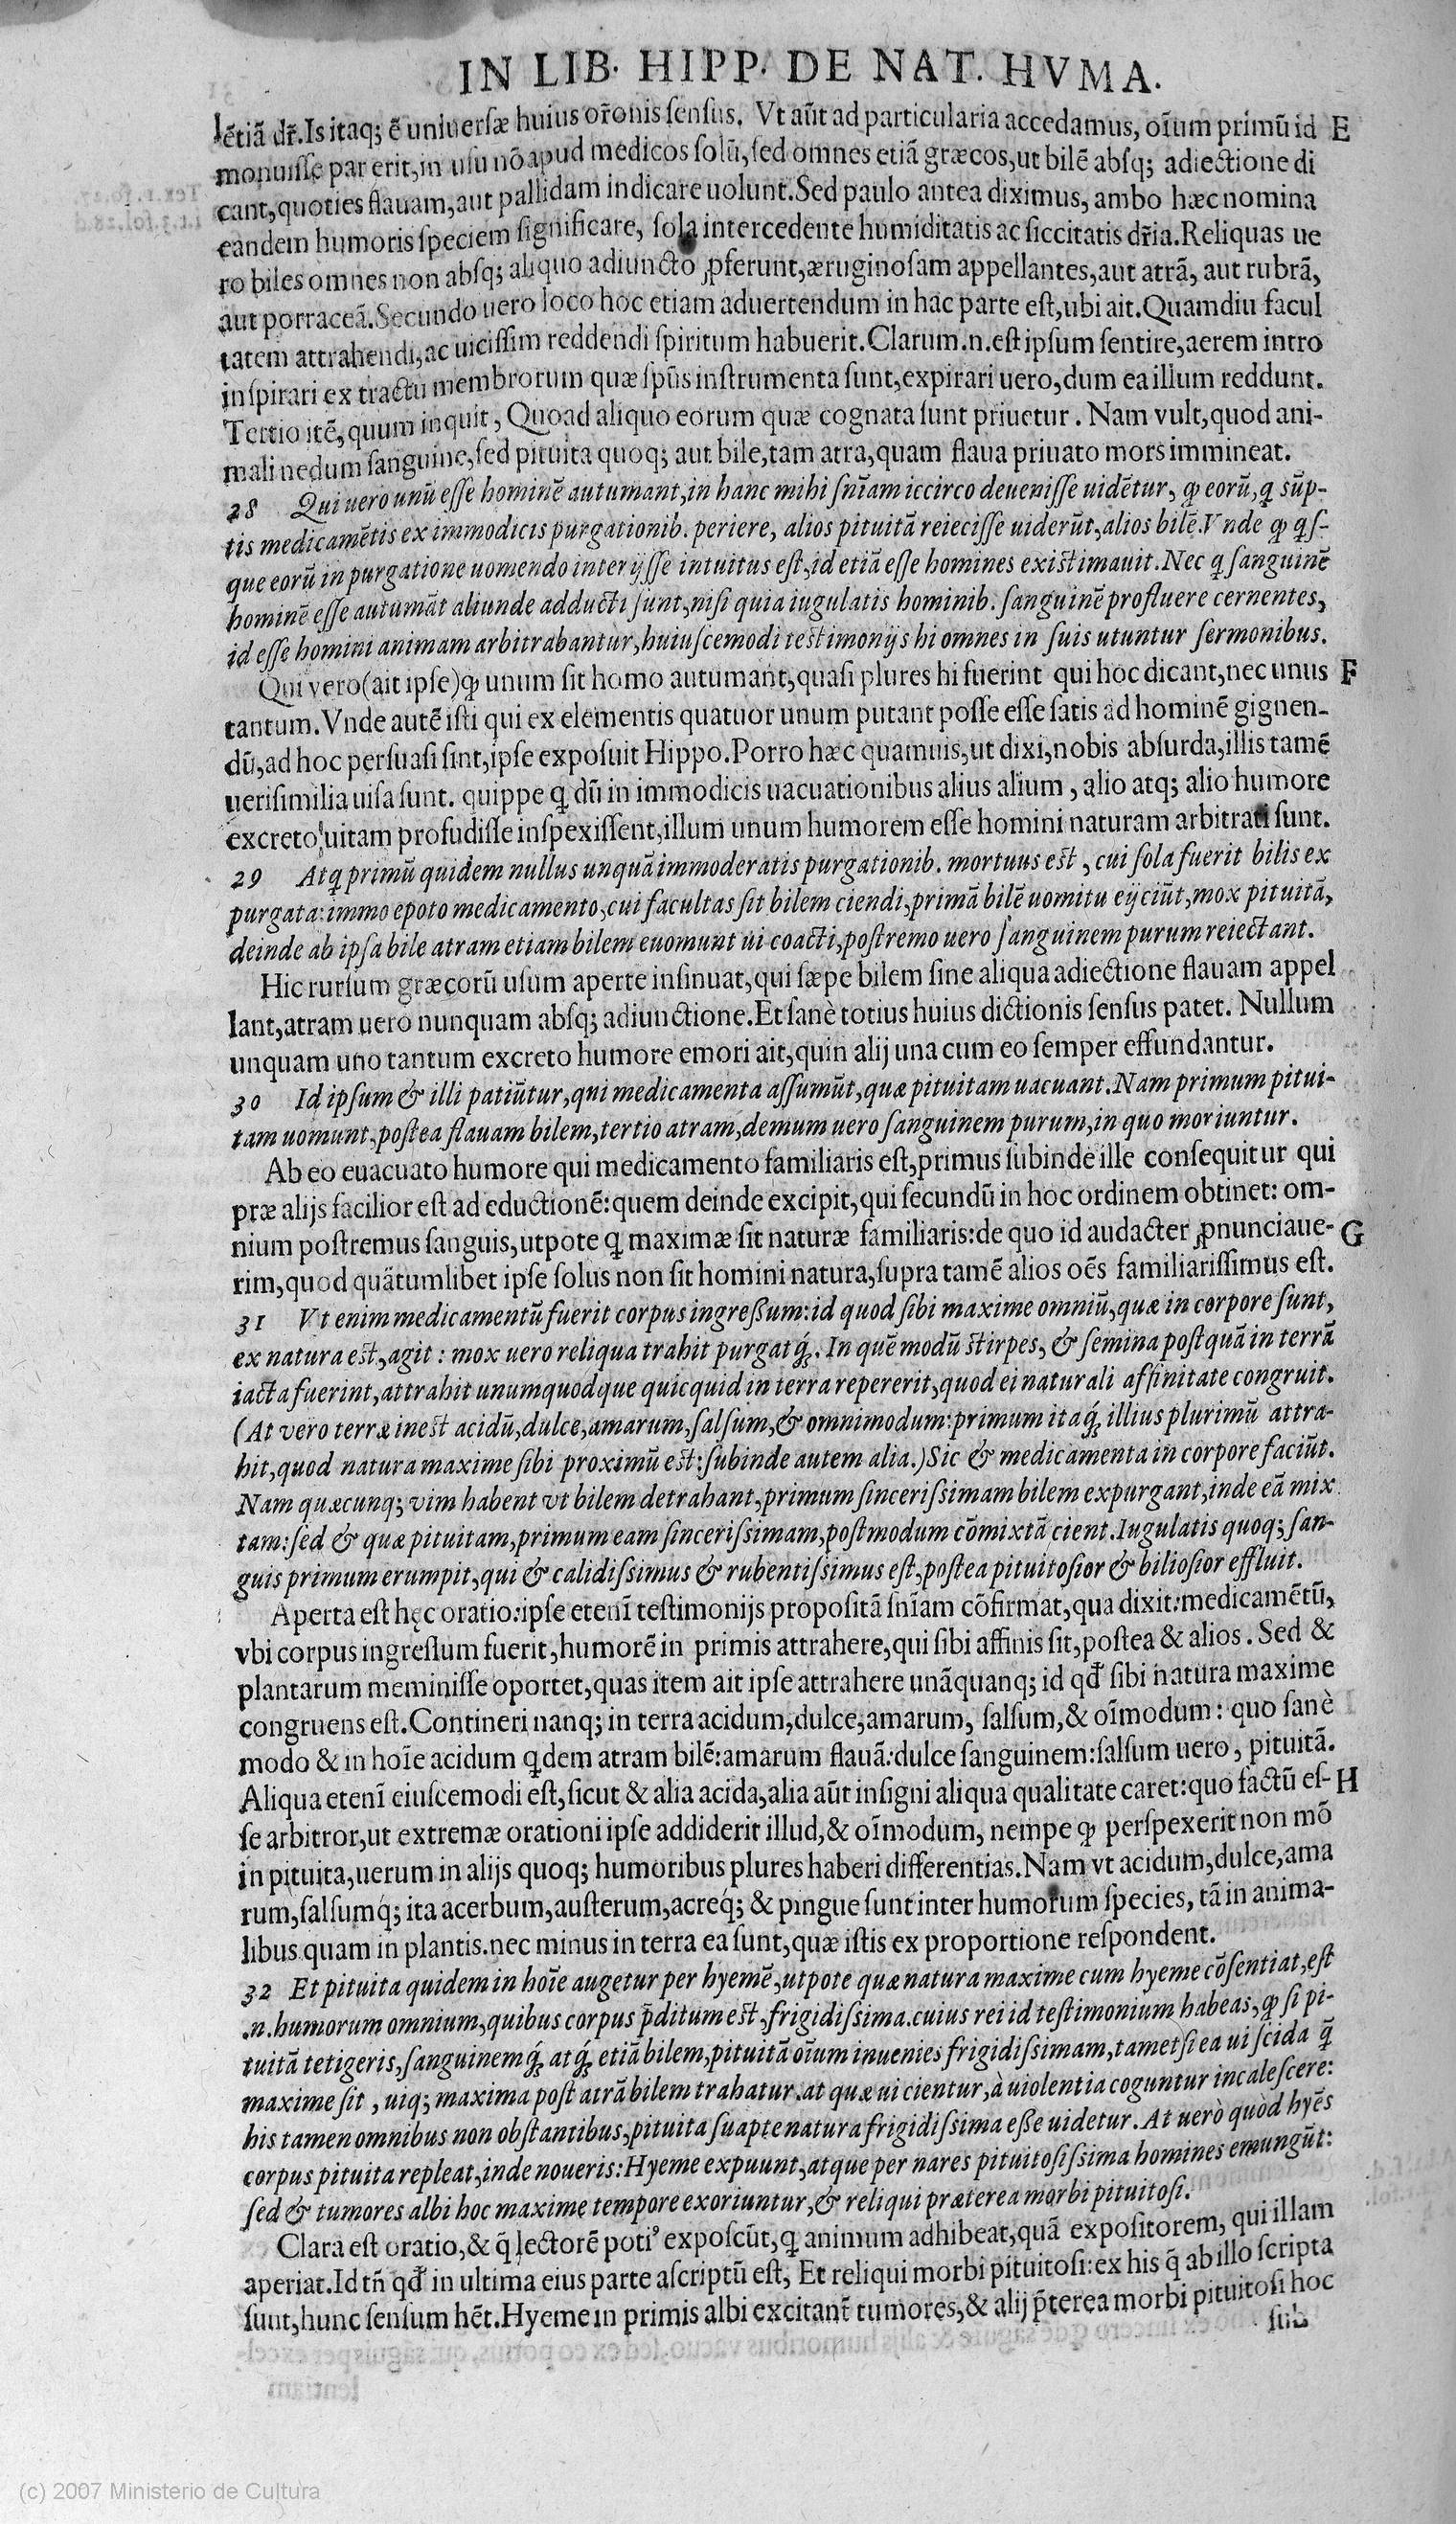 IN LIB. HIPP. DE NAT. HVMA.
lẽtiã dr̃. Is itaq; ẽ uniuersæ huius or̃onis sensus. Vt aũt ad particularia accedamus, oĩum primũ id E
monuisse par erit, in usu nõ apud medicos solũ, sed omnes etiã græcos, ut bilẽ absq; adiectione di
cant, quoties flauam, aut pallidam indicare uolunt. Sed paulo antea diximus, ambo hæc nomina
eandem humoris speciem significare, sola intercedente humiditatis ac siccitatis dr̃ia. Reliquas ue
ro biles omnes non absq; aliquo adiuncto ꝓferunt, æruginosam appellantes, aut atrã, aut rubrã,
aut porraceã. Secundo uero loco hoc etiam aduertendum in hac parte est, ubi ait. Quamdiu facul
tatem attrahendi, ac uicissim reddendi spiritum habuerit. Clarum .n. est ipsum sentire, aerem intro
inspirari ex tractu membrorum quæ sp̃us instrumenta sunt, expirari uero, dum ea illum reddunt.
Tertio itẽ, quum inquit, Quoad aliquo eorum quæ cognata sunt priuetur. Nam vult, quod ani-
mali nedum sanguine, sed pituita quoq; aut bile, tam atra, quam flaua priuato mors immineat.
28 Qui uero unũ esse hominẽ autumant, in hanc mihi sñiam iccirco deuenisse uidẽtur, ꝙ eorũ, ꝗ sũp-
tis medicamẽtis ex immodicis purgationib. periere, alios pituitã reiecisse uiderũt, alios bilẽ. Vnde ꝙ ꝗs-
que eorũ in purgatione uomendo interijsse intuitus est, id etiã esse homines existimauit. Nec ꝗ sanguinẽ
hominẽ esse autumãt aliunde adducti sunt, nisi quia iugulatis hominib. sanguinẽ profluere cernentes,
id esse homini animam arbitrabantur, huiuscemodi testimonijs hi omnes in suis utuntur sermonibus.
Qui vero (ait ipse) ꝙ unum sit homo autumant, quasi plures hi fuerint qui hoc dicant, nec unus F
tantum. Vnde autẽ isti qui ex elementis quatuor unum putant posse esse satis ad hominẽ gignen-
dũ, ad hoc persuasi sint, ipse exposuit Hippo. Porro hæc quamuis, ut dixi, nobis absurda, illis tamẽ
uerisimilia uisa sunt. quippe ꝗ dũ in immodicis uacuationibus alius alium, alio atq; alio humore
excreto uitam profudisse inspexissent, illum unum humorem esse homini naturam arbitrati sunt.
29 Atꝗ primũ quidem nullus unquã immoderatis purgationib. mortuus est, cui sola fuerit bilis ex
purgata: immo epoto medicamento, cui facultas sit bilem ciendi, primã bilẽ uomitu eijciũt, mox pituitã,
deinde ab ipsa bile atram etiam bilem euomunt ui coacti, postremo uero sanguinem purum reiectant.
Hic rursum græcorũ usum aperte insinuat, qui sæpe bilem sine aliqua adiectione flauam appel
lant, atram uero nunquam absq; adiunctione. Et sanè totius huius dictionis sensus patet. Nullum
unquam uno tantum excreto humore emori ait, quin alij una cum eo semper effundantur.
30 Id ipsum & illi patiũtur, qui medicamenta assumũt, quæ pituitam uacuant. Nam primum pitui-
tam uomunt, postea flauam bilem, tertio atram, demum uero sanguinem purum, in quo moriuntur.
Ab eo euacuato humore qui medicamento familiaris est, primus subinde ille consequitur qui
præ alijs facilior est ad eductionẽ: quem deinde excipit, qui secundũ in hoc ordinem obtinet: om-
nium postremus sanguis, utpote ꝗ maximæ sit naturæ familiaris: de quo id audacter ꝓnunciaue- G
rim, quod quãtumlibet ipse solus non sit homini natura, supra tamẽ alios oẽs familiarissimus est.
31 Vt enim medicamentũ fuerit corpus ingreßum: id quod sibi maxime omniũ, quæ in corpore sunt,
ex natura est, agit: mox uero reliqua trahit purgatq́;. In quẽ modũ stirpes, & semina postquã in terrã
iacta fuerint, attrahit unumquodque quicquid in terra repererit, quod ei naturali affinitate congruit.
(At vero terræ inest acidũ, dulce, amarum, salsum, & omnimodum: primum itaq́; illius plurimũ attra-
hit, quod natura maxime sibi proximũ est: subinde autem alia.) Sic & medicamenta in corpore faciũt.
Nam quæcunq; vim habent vt bilem detrahant, primum sincerissimam bilem expurgant, inde eã mix
tam: sed & quæ pituitam, primum eam sincerissimam, postmodum cõmixtã cient. Iugulatis quoq; san-
guis primum erumpit, qui & calidissimus & rubentissimus est, postea pituitosior & biliosior effluit.
Aperta est hęc oratio: ipse etenĩ testimonijs propositã sñiam cõfirmat, qua dixit: medicamẽtũ,
vbi corpus ingressum fuerit, humorẽ in primis attrahere, qui sibi affinis sit, postea & alios. Sed &
plantarum meminisse oportet, quas item ait ipse attrahere unãquanq; id qđ sibi natura maxime
congruens est. Contineri nanq; in terra acidum, dulce, amarum, salsum, & oĩmodum: quo sanè
modo & in hoĩe acidum ꝗdem atram bilẽ: amarum flauã: dulce sanguinem: salsum uero, pituitã.
Aliqua etenĩ eiuscemodi est, sicut & alia acida, alia aũt insigni aliqua qualitate caret: quo factũ es- H
se arbitror, ut extremæ orationi ipse addiderit illud, & oĩmodum, nempe ꝙ perspexerit non mõ
in pituita, uerum in alijs quoq; humoribus plures haberi differentias. Nam vt acidum, dulce, ama
rum, salsumq́; ita acerbum, austerum, acreq́; & pingue sunt inter humorum species, tã in anima-
libus quam in plantis. nec minus in terra ea sunt, quæ istis ex proportione respondent.
32 Et pituita quidem in hoĩe augetur per hyemẽ, utpote quæ natura maxime cum hyeme cõsentiat, est
.n. humorum omnium, quibus corpus p̃ditum est, frigidissima. cuius rei id testimonium habeas, ꝙ si pi-
tuitã tetigeris, sanguinemq́; atq́; etiã bilem, pituitã oĩum inuenies frigidissimam, tametsi ea uiscida q̃
maxime sit, uiq; maxima post atrã bilem trahatur. at quæ ui cientur, à uiolentia coguntur incalescere:
his tamen omnibus non obstantibus, pituita suapte natura frigidissima eße uidetur. At uerò quod hyẽs
corpus pituita repleat, inde noueris: Hyeme expuunt, atque per nares pituitosissima homines emungũt:
sed & tumores albi hoc maxime tempore exoriuntur, & reliqui præterea morbi pituitosi.
Clara est oratio, & q̃ lectorẽ poti⁹ exposcũt, ꝗ animum adhibeat, quã expositorem, qui illam
aperiat. Id tñ qđ in ultima eius parte ascriptũ est, Et reliqui morbi pituitosi: ex his q̃ ab illo scripta
sunt, hunc sensum hẽt. Hyeme in primis albi excitant̃ tumores, & alij p̃terea morbi pituitosi hoc
sub
(c) 2007 Ministerio de Cultura